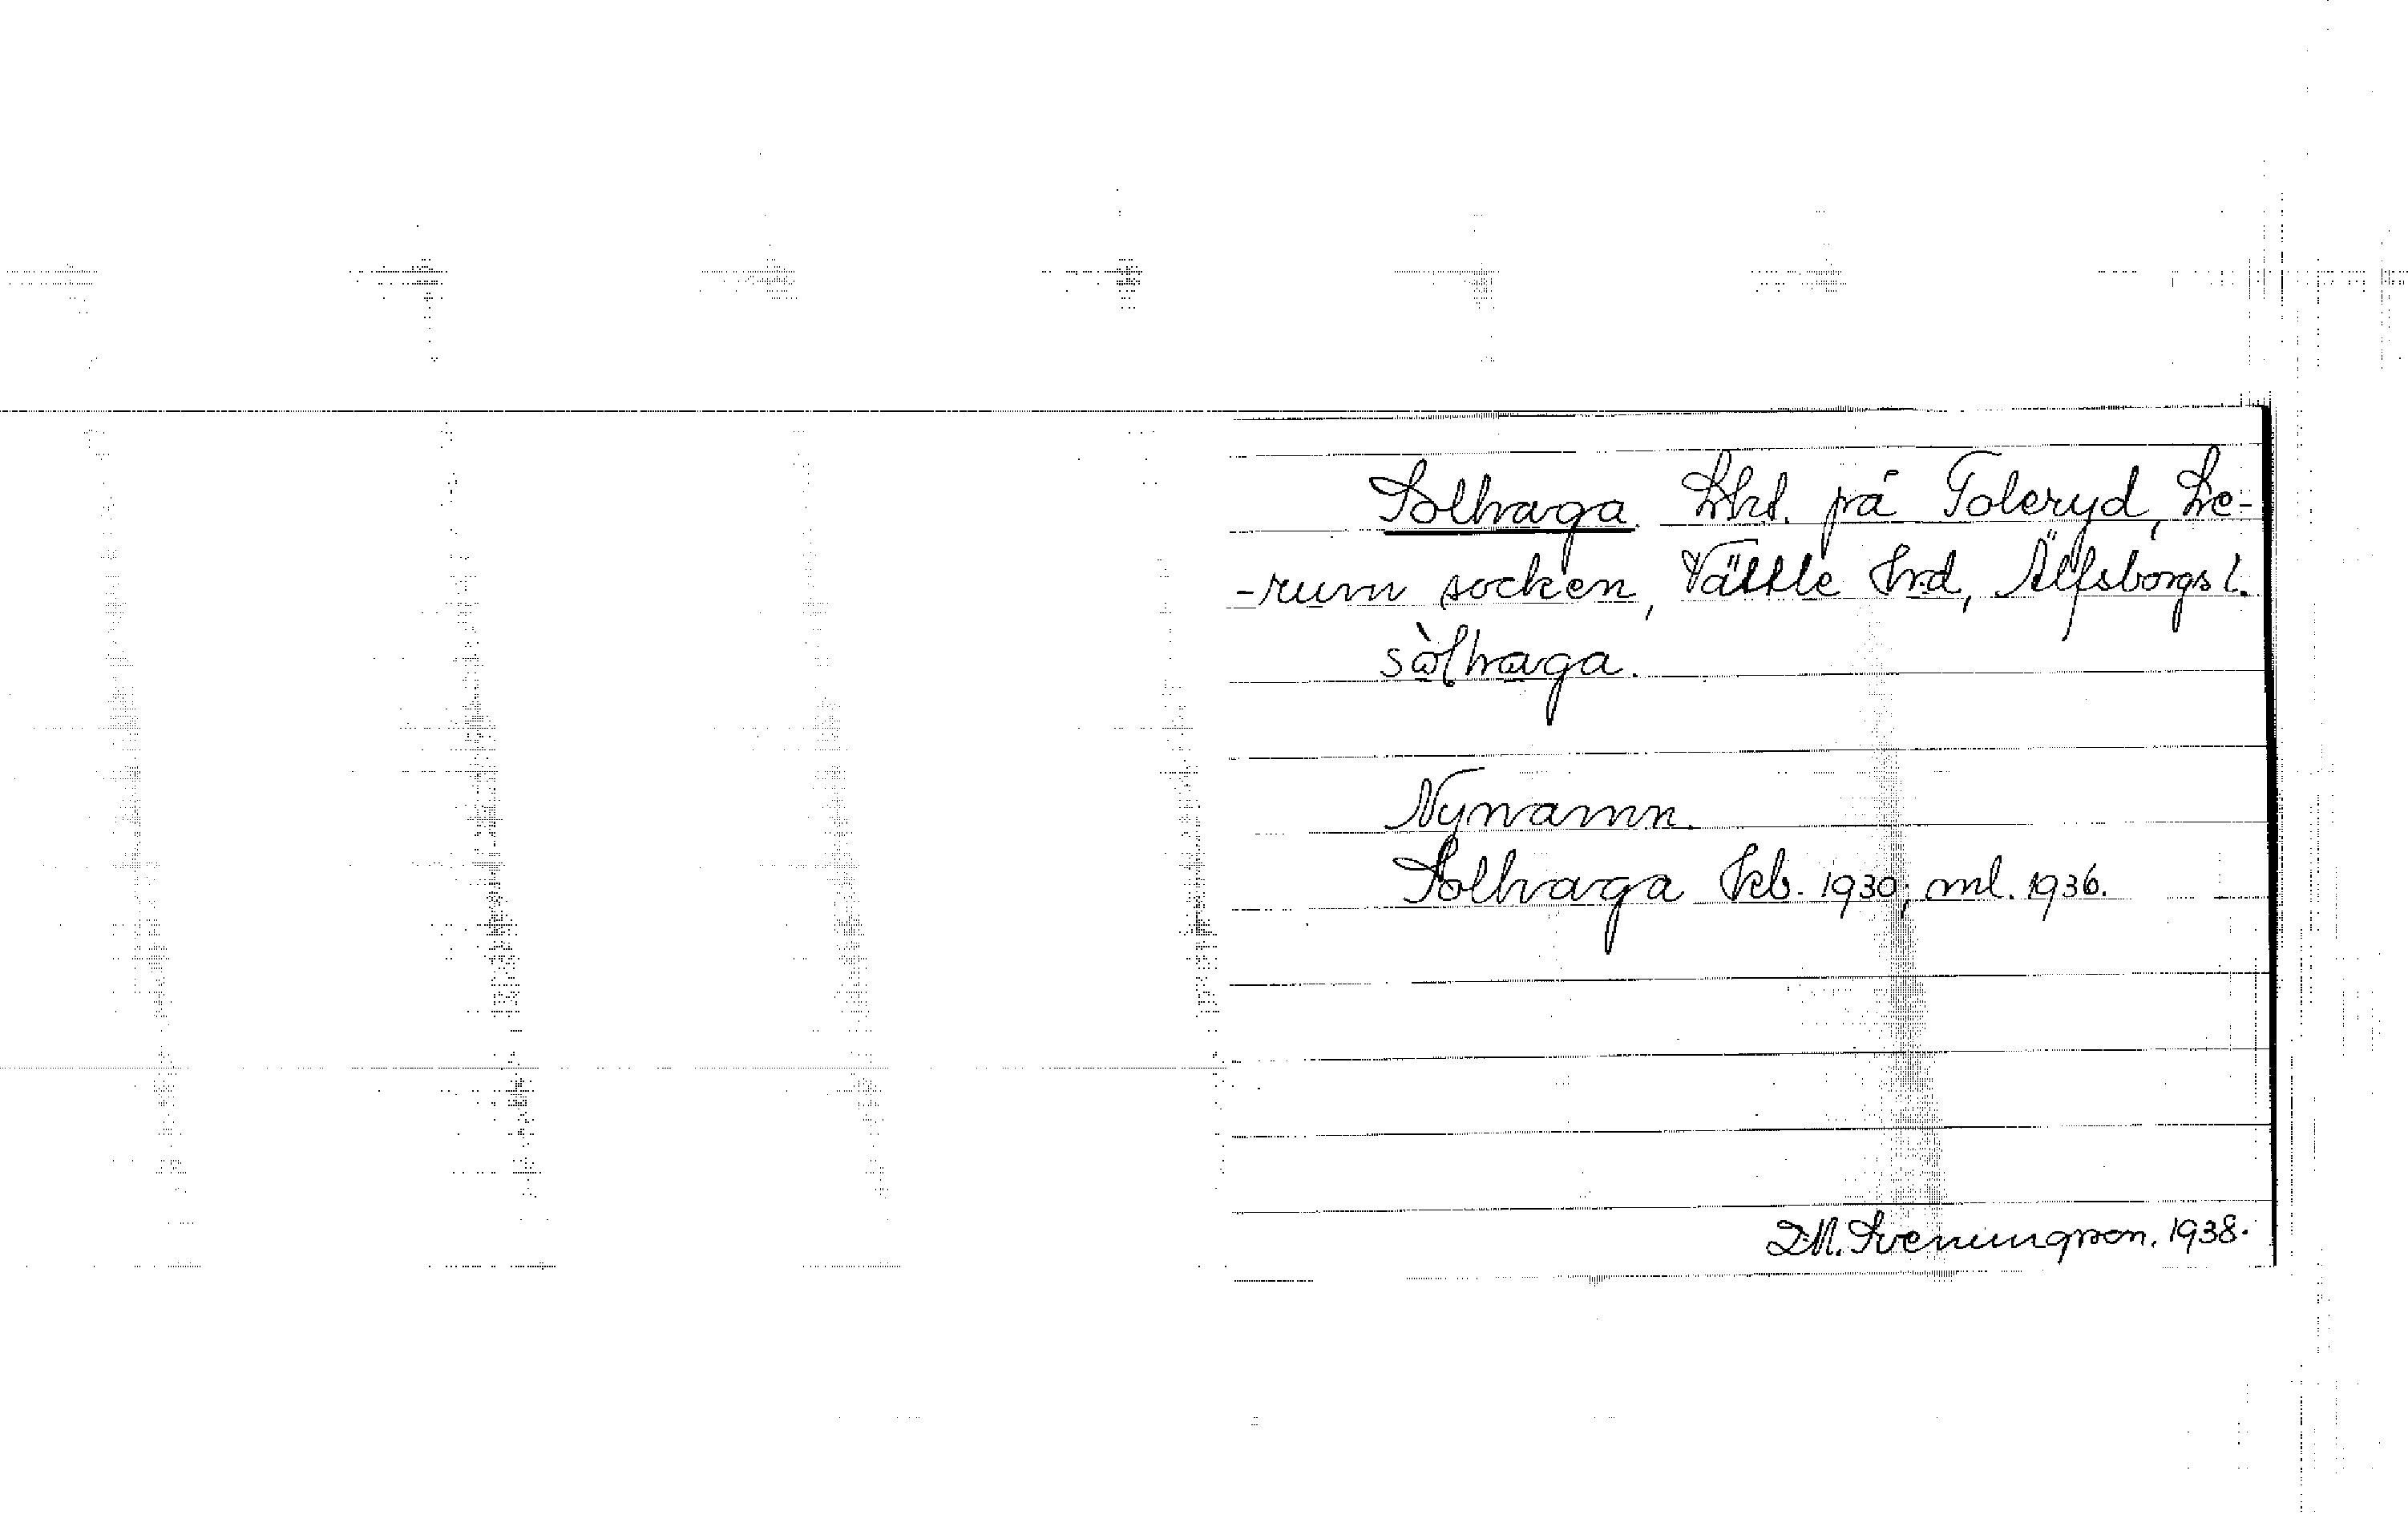 Solhaga. Lht. på Toleryd, Le-
-rum socken, Vättle hrd, Älfsborgs l.
sòlhaga.
Nynamn.
Solhaga kb. 1930; ml. 1936.
D.M. Sveningson. 1938.